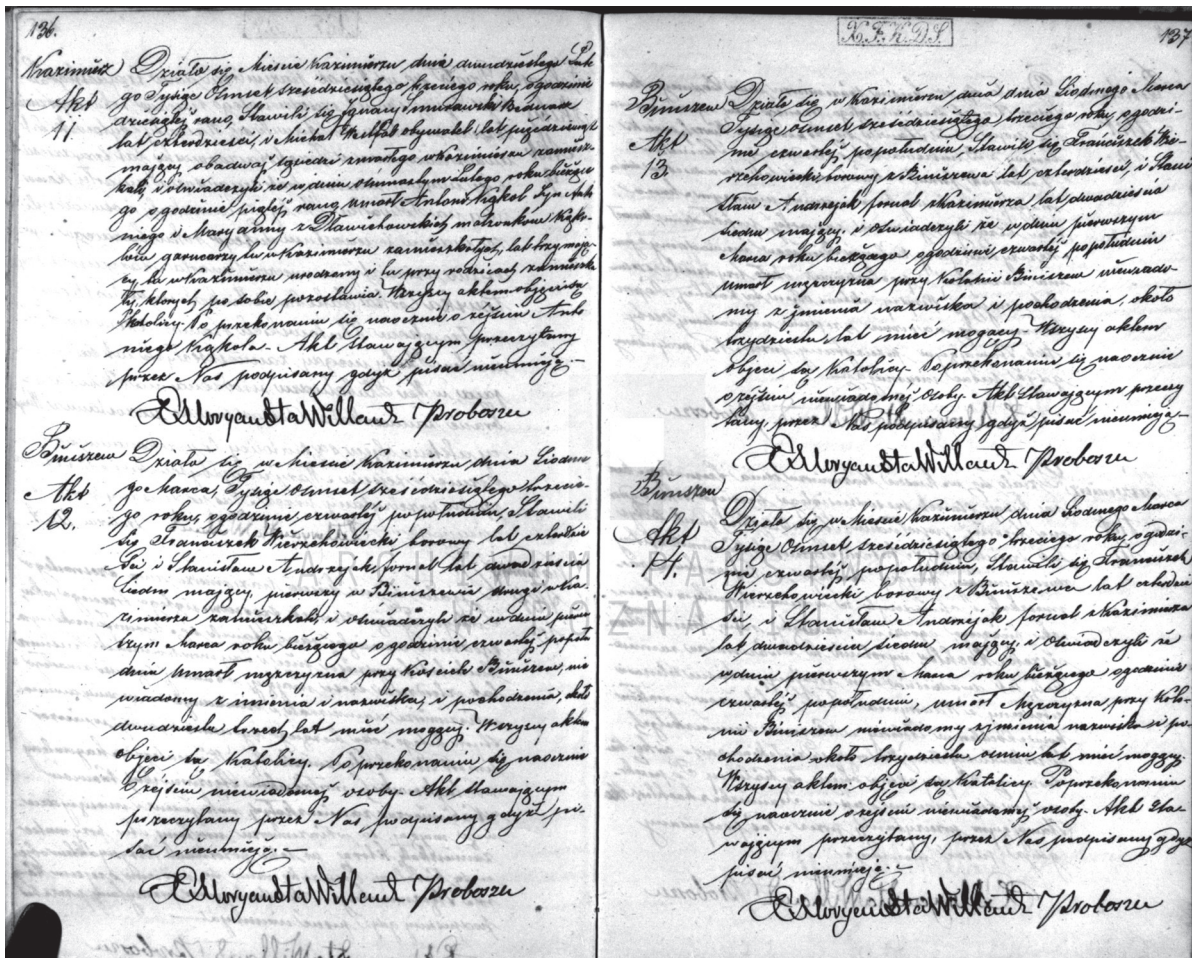 136.
Kazimierz
Akt
11.
Działo się Mieście Kazimierzu, dnia dwudziestego Lute-
go Tysiąc Ośmset sześćdziesiątego trzeciego roku, o godzinie
dziesiątej rano, Stawili się Ignacy Bednarz
lat czterdzieści, i Michał obywatel, lat pięćdziesiąt
mający obadwaj sąsiedzi zmarłego w Kazimierzu zamiesz-
kali, i oświadczyli że w dniu ośmnastym Lutego roku bieżące-
go o godzinie piątej rano, umarł Antoni Kąkol Syn Anto-
niego i Maryanny z małżonków Kąko-
lów garncarzy tu w Kazimierzu zamieszkałych, lat trzy mają-
cy, tu w Kazimierzu urodzony i tu przy rodzicach zamieszka-
ły, których po sobie pozostawia. Wszyscy aktem objęci są
Katolicy. Po przekonaniu się naocznie o zejściu Anto-
niego Kąkola. Akt Stawającym przeczytany
przez Nas podpisany gdyż pisać nieumieją.
X Willand Proboszcz
Biniszew
Akt
12.
Działo się w Mieście Kazimierzu dnia Siódme-
go Marca, Tysiąc Ośmset sześćdziesiątego trzecie-
go roku, o godzinie czwartej popołudniu, Stawili
się Franciszek Wierzchowiecki borowy lat czterdzie-
ści i Stanisław Andrzejak fornal lat dwadzieścia
siedm mający, pierwszy w Biniszewie drugi w Ka-
zimierzu zamieszkali, i oświadczyli że w dniu pierw-
szym Marca roku bieżącego o godzinie czwartej popołu-
dniu umarł mężczyzna przy Biniszew, nie
wiadomy z imienia i nazwiska, i pochodzenia, około
dwadzieścia trzech lat mieć mogący. Wszyscy aktem
objęci są Katolicy. Po przekonaniu się naocznie
o zejściu niewiadomej osoby. Akt stawającym
przeczytany przez Nas podpisany gdyż pi-
sać nieumieją.
X Willand Proboszcz
X.F.K.D.S.
137
Biniszew
Akt
13.
Działo się w Kazimierzu, dnia dnia Siódmego Marca
Tysiąc ośmset sześćdziesiątego trzeciego roku, o godzi-
nie czwartej popołudniu, Stawili się Franciszek Wie-
rzchowiecki borowy z Biniszewa lat czterdzieści, i Stani-
sław Andrzejak fornal z Kazimierza lat dwadzieścia
siedm mający, i oświadczyli że w dniu pierwszym
Marca roku bieżącego o godzinie czwartej popołudniu
umarł mężczyzna przy Kolonii Biniszew niewiado-
my z imienia nazwiska i pochodzenia, około
trzydzieści, lat mieć mogący. Wszyscy aktem
objęci są Katolicy. Po przekonaniu się naocznie
o zejściu niewiadomej Osoby. Akt Stawającym przeczy-
tany, przez Nas podpisany gdyż pisać nieumieją.
X Willand Proboszcz
Biniszew
Akt
14.
Działo się w Mieście Kazimierzu dnia Siódmego Marca
Tysiąc Ośmset sześćdziesiątego trzeciego roku, o godzi-
nie czwartej popołudniu, Stawili się Franciszek
Wierzchowiecki borowy z Biniszewa lat czterdzie-
ści, i Stanisław Andrzejak fornal z Kazimierza
lat dwadzieścia siedm, mający, i Oświadczyli że
w dniu pierwszym Marca roku bieżącego o godzinie
czwartej popołudniu, umarł Mężczyzna przy Kolo-
nii Biniszew niewiadomy z imienia nazwiska i po-
chodzenia około trzydzieści ośm lat mieć mogący.
Wszyscy aktem objęci są Katolicy. Po przekonaniu
się naocznie o zejściu niewiadomej osoby. Akt Sta-
wającym przeczytany, przez Nas podpisany gdyż
pisać nieumieją.
X Willand Proboszcz